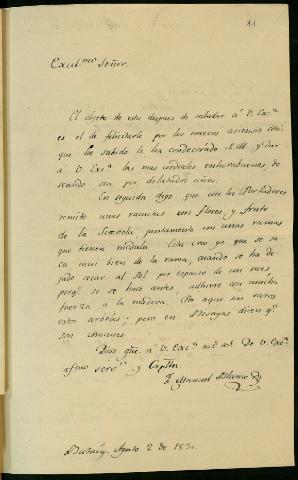 11
Excel.mo Señor.
El objeto de esta despues de saludar á V. Exc.a
es el de felicitarle por los nuevos ascensos con
que he sabido le ha condecorado S.M. y dar
á V. Exc.a las mas cordiales enhorabuenas, de
seando sea por dilatados años.
En seguida digo que con los Portadores
remito unas ramitas con flores y fruto
de la juntamente con unas ramas
que tienen médula. Esta creo yo que se sa
ca mui bien de la rama, cuando se ha de
jado secar al Sol por espacio de un mes,
porq.e si se hace antes, adhiere con mucha
fuerza a la madera. Por aqui son raros
estos arboles; pero en Bisayas dicen q.e
son comunes.
Dios gue. á V. Exc.a m.s a.s De V. Exc.a
af.mo serv.or y Cap.lln
F. Manuel Blanco
Agosto 2 de 183